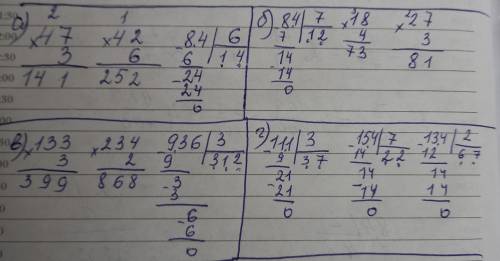 а)
2
×47
3
141
1
×42
6
252
-84 | 6
6 | 14
-24
24
0
б)
84 | 7
7 | 12
14
14
0
3
×18
4
73
2
×27
3
81
в)
×133
3
399
×234
2
868
-936 | 3
9 | 312
-3
3
-6
6
0
г)
-111 | 3
9 | 37
-21
21
0
-154 | 7
14 | 22
-14
14
0
-134 | 2
12 | 67
14
14
0